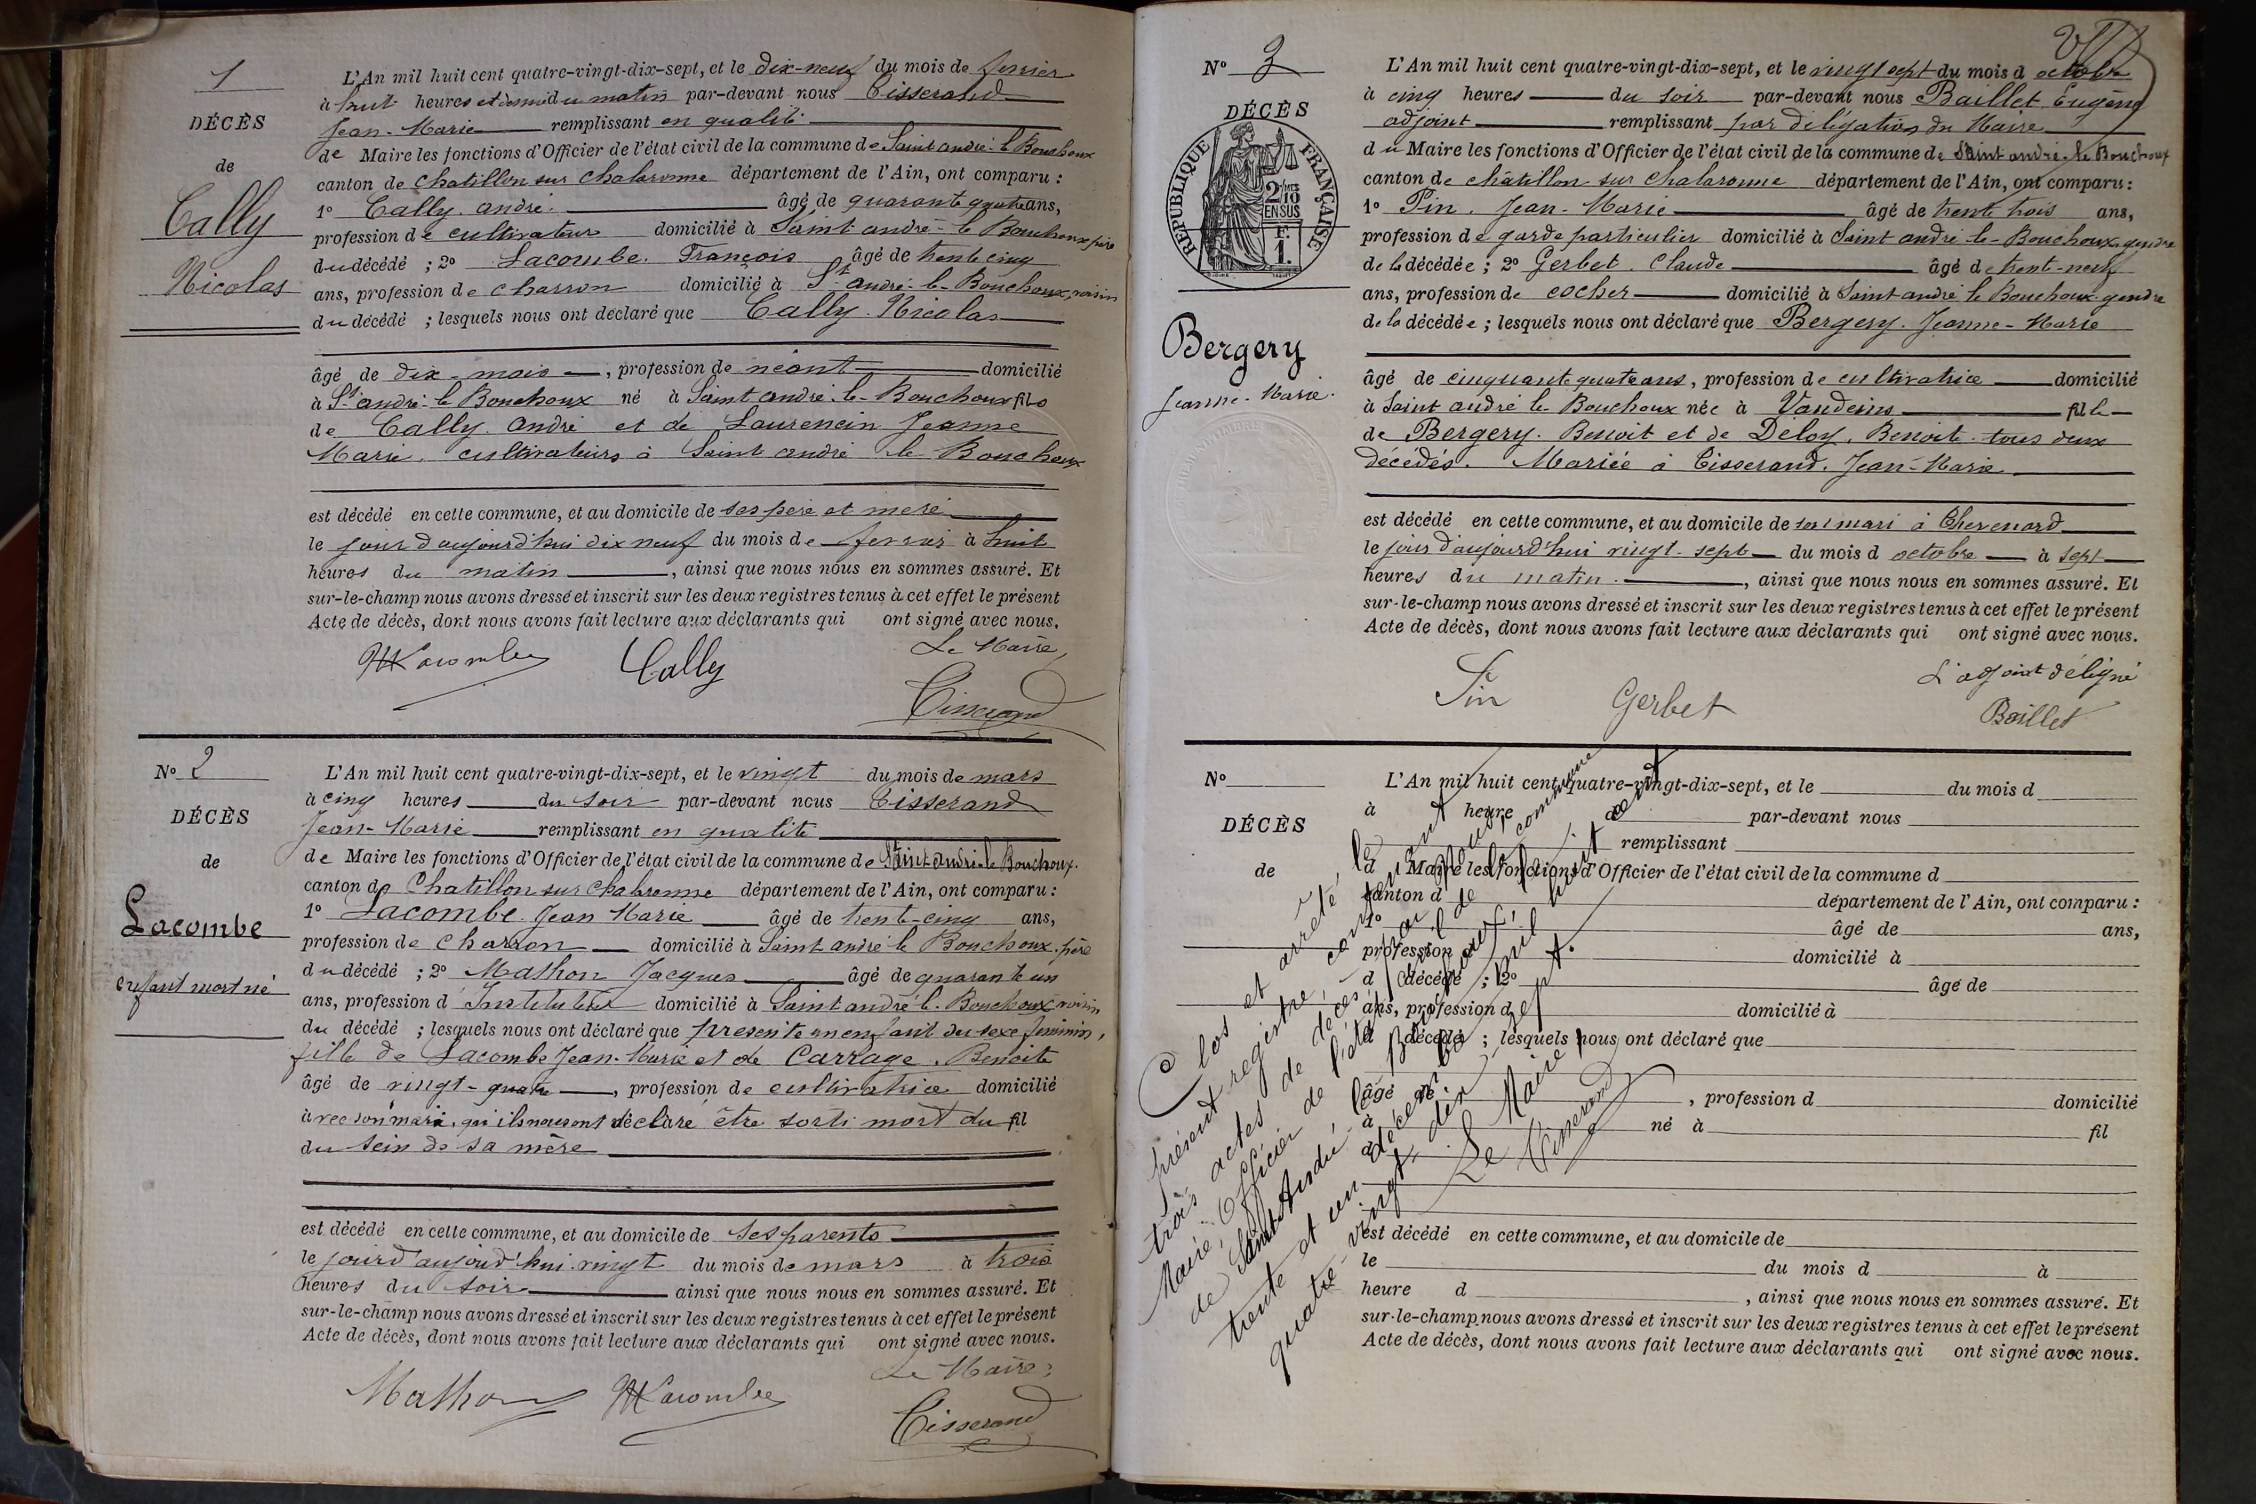 1
DÉCÈS
de
Cally
Nicolas
L'An mil huit cent quatre-vingt-dix-sept, et le dix-neuf du mois de fevrier
à huit heures et demie du matin par-devant nous Tisserand
Jean-Marie remplissant en qualité
de Maire les fonctions d'Officier de l'état civil de la commune de Saint andré-le Bouchoux
canton de Chatillon sur Chalaronne département de l'Ain, ont comparu :
1º Cally. andré. âgé de quarante quatre ans,
profession de cultivateur domicilié à Saint andré-le Bouchoux père
du décédé ; 2º Lacombe. François âgé de trente cinq
ans, profession de Charron domicilié à St andré-le-Bouchoux, voisin
du décédé ; lesquels nous ont déclaré que Cally. Nicolas
âgé de dix-mois, profession de néant domicilié
à St andré-le Bouchoux né à Saint andré-le-Bouchoux fils
de Cally. andré et de Laurencin Jeanne
Marie. cultivateurs à Saint andré le Bouchoux
est décédé en cette commune, et au domicile de ses père et mère
le jour d'aujourd'hui dix neuf du mois de fevrier à huit
heures du matin, ainsi que nous nous en sommes assuré. Et
sur-le-champ nous avons dressé et inscrit sur les deux registres tenus à cet effet le présent
Acte de décès, dont nous avons fait lecture aux déclarants qui ont signé avec nous.
Le Maire,
Lacombe Cally
Tisserand
Nº 2
DÉCÈS
de
Lacombe
enfant mort né
L'An mil huit cent quatre-vingt-dix-sept, et le vingt du mois de mars
à cinq heures du soir par-devant nous Tisserand
Jean-Marie remplissant en qualité
de Maire les fonctions d'Officier de l'état civil de la commune de Saint andré-le Bouchoux.
canton de Chatillon sur Chalaronne département de l'Ain, ont comparu :
1º Lacombe. Jean Marie âgé de trente-cinq ans,
profession de Charron domicilié à Saint andré le Bouchoux. père
du décédé ; 2º Mathon Jacques âgé de quarante un
ans, profession d Instituteur domicilié à Saint andré le-Bouchoux voisin
du décédé ; lesquels nous ont déclaré que presente un enfant du sexe feminin,
fille de Lacombe Jean-Marie et de Carrage. Benoite
âgé de vingt-quatre, profession de cultivatrice domicilié
avec son mari, qui ils nous ont déclaré être sorti mort du fil
du sein de sa mère
est décédé en cette commune, et au domicile de ses parents
le jour d'aujourd'hui vingt du mois de mars à trois
heures du soir ainsi que nous nous en sommes assuré. Et
sur-le-champ nous avons dressé et inscrit sur les deux registres tenus à cet effet le présent
Acte de décès, dont nous avons fait lecture aux déclarants qui ont signé avec nous.
Le Maire,
Mathon Lacombe
Tisserand
Nº 3
DÉCÈS
RÉPUBLIQUE FRANÇAISE
2 / 10 EN SUS
F.
1.
Bergery
Jeanne-Marie.
L'An mil huit cent quatre-vingt-dix-sept, et le vingt sept du mois d octobre
à cinq heures du soir par-devant nous Baillet Eugène
adjoint remplissant par délégation du Maire
du Maire les fonctions d'Officier de l'état civil de la commune de Saint andré-le Bouchoux
canton de châtillon sur Chalaronne département de l'Ain, ont comparu :
1º Pin. Jean-Marie âgé de trente trois ans,
profession de garde particulier domicilié à Saint andré le-Bouchoux, gendre
de la décédée ; 2º Gerbet. Claude âgé de trente-neuf
ans, profession de cocher domicilié à Saint andré le Bouchoux. gendre
de la décédée ; lesquels nous ont déclaré que Bergery. Jeanne-Marie
âgé de cinquante quatre ans, profession de cultivatrice domicilié
à Saint andré le Bouchoux née à Vandeins fille
de Bergery. Benoit et de Deloy. Benoite. tous deux
décédés. Mariée à Tisserand. Jean-Marie
est décédé en cette commune, et au domicile de son mari à Chevenard
le jour d'aujourd'hui vingt-sept du mois d octobre à sept
heures du matin., ainsi que nous nous en sommes assuré. Et
sur-le-champ nous avons dressé et inscrit sur les deux registres tenus à cet effet le présent
Acte de décès, dont nous avons fait lecture aux déclarants qui ont signé avec nous.
L'adjoint délégué
Pin Gerbet
Baillet
Nº
DÉCÈS
de
L'An mil huit cent quatre-vingt-dix-sept, et le du mois d
à heure par-devant nous
remplissant
d Maire les fonctions d'Officier de l'état civil de la commune d
canton d département de l'Ain, ont comparu :
1º âgé de ans,
profession domicilié à
d décédé ; 2º âgé de
ans, profession d domicilié à
d décédé ; lesquels nous ont déclaré que
âgé de, profession d domicilié
à né à fil
d
est décédé en cette commune, et au domicile de
le du mois d à
heure d, ainsi que nous nous en sommes assuré. Et
sur-le-champ nous avons dressé et inscrit sur les deux registres tenus à cet effet le présent
Acte de décès, dont nous avons fait lecture aux déclarants qui ont signé avec nous.
Clos et arrêté, le
présent registre, contenant
trois actes de décès, par nous,
Maire, Officier de l'état civil de la commune
de Saint André le Bouchoux, le
trente et un décembre mil huit cent
quatre-vingt-dix-sept.
Le Maire,
Tisserand